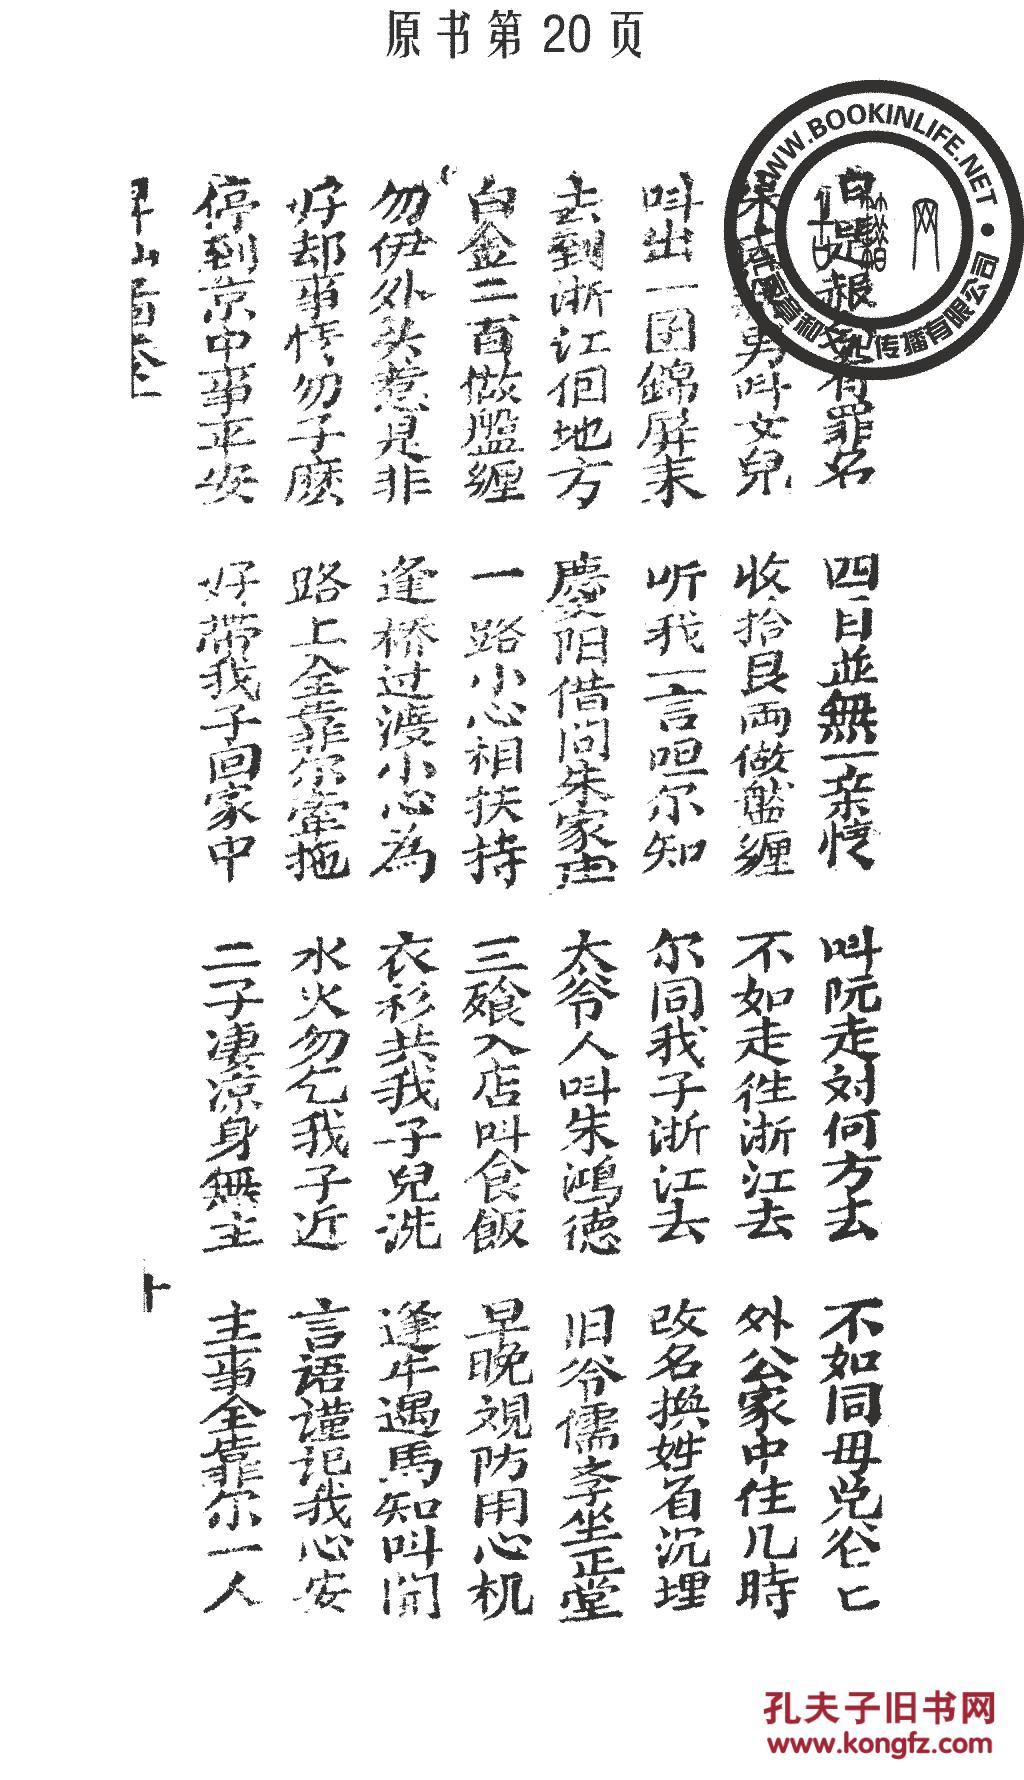 原书第20页
WWW.BOOKINLIFE.NET
传播有限公司
有罪名 四目並無一亲情 叫阮走对何方去 不如同毋兑爸匕
男叫女兒 收拾艮両做盤缠 不如走徃浙江去 外公家中住几時
叫出一囝錦屏来 听我一言呾尔知 尔同我子浙江去 改名换姓省沉埋
去到浙江佪地方 慶阳借问朱家庄 太爷人叫朱鴻德 旧爷儒李坐正堂
白金二百做盤缠 一路小心相扶持 三飧入店叫食飯 早晚覌防用心机
勿伊外头惹是非 逢桥过渡小心為 衣衫共我子兒洗 逢牛遇馬知叫閗
好却事情勿子麽 路上全靠尔牽拖 水火勿乞我子近 言语谨记我心安
停到京中事平安 好帶我子回家中 二子凄凉身無主 主事全靠尔一人
十
孔夫子旧书网
www.kongfz.com